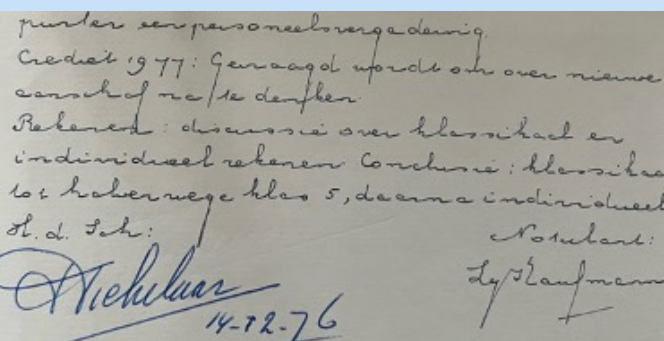 punten een personeelsvergadering.
Crediet 1977: Gevraagd wordt om over nieuwe
aanschaf na te denken.
Rekenen: discussie over klassikaal en
individueel rekenen. Conclusie: klassikaal
tot halverwege klas 5, daarna individueel
H.d. Sch:
Notulant:
Kaufmann
14-12-76